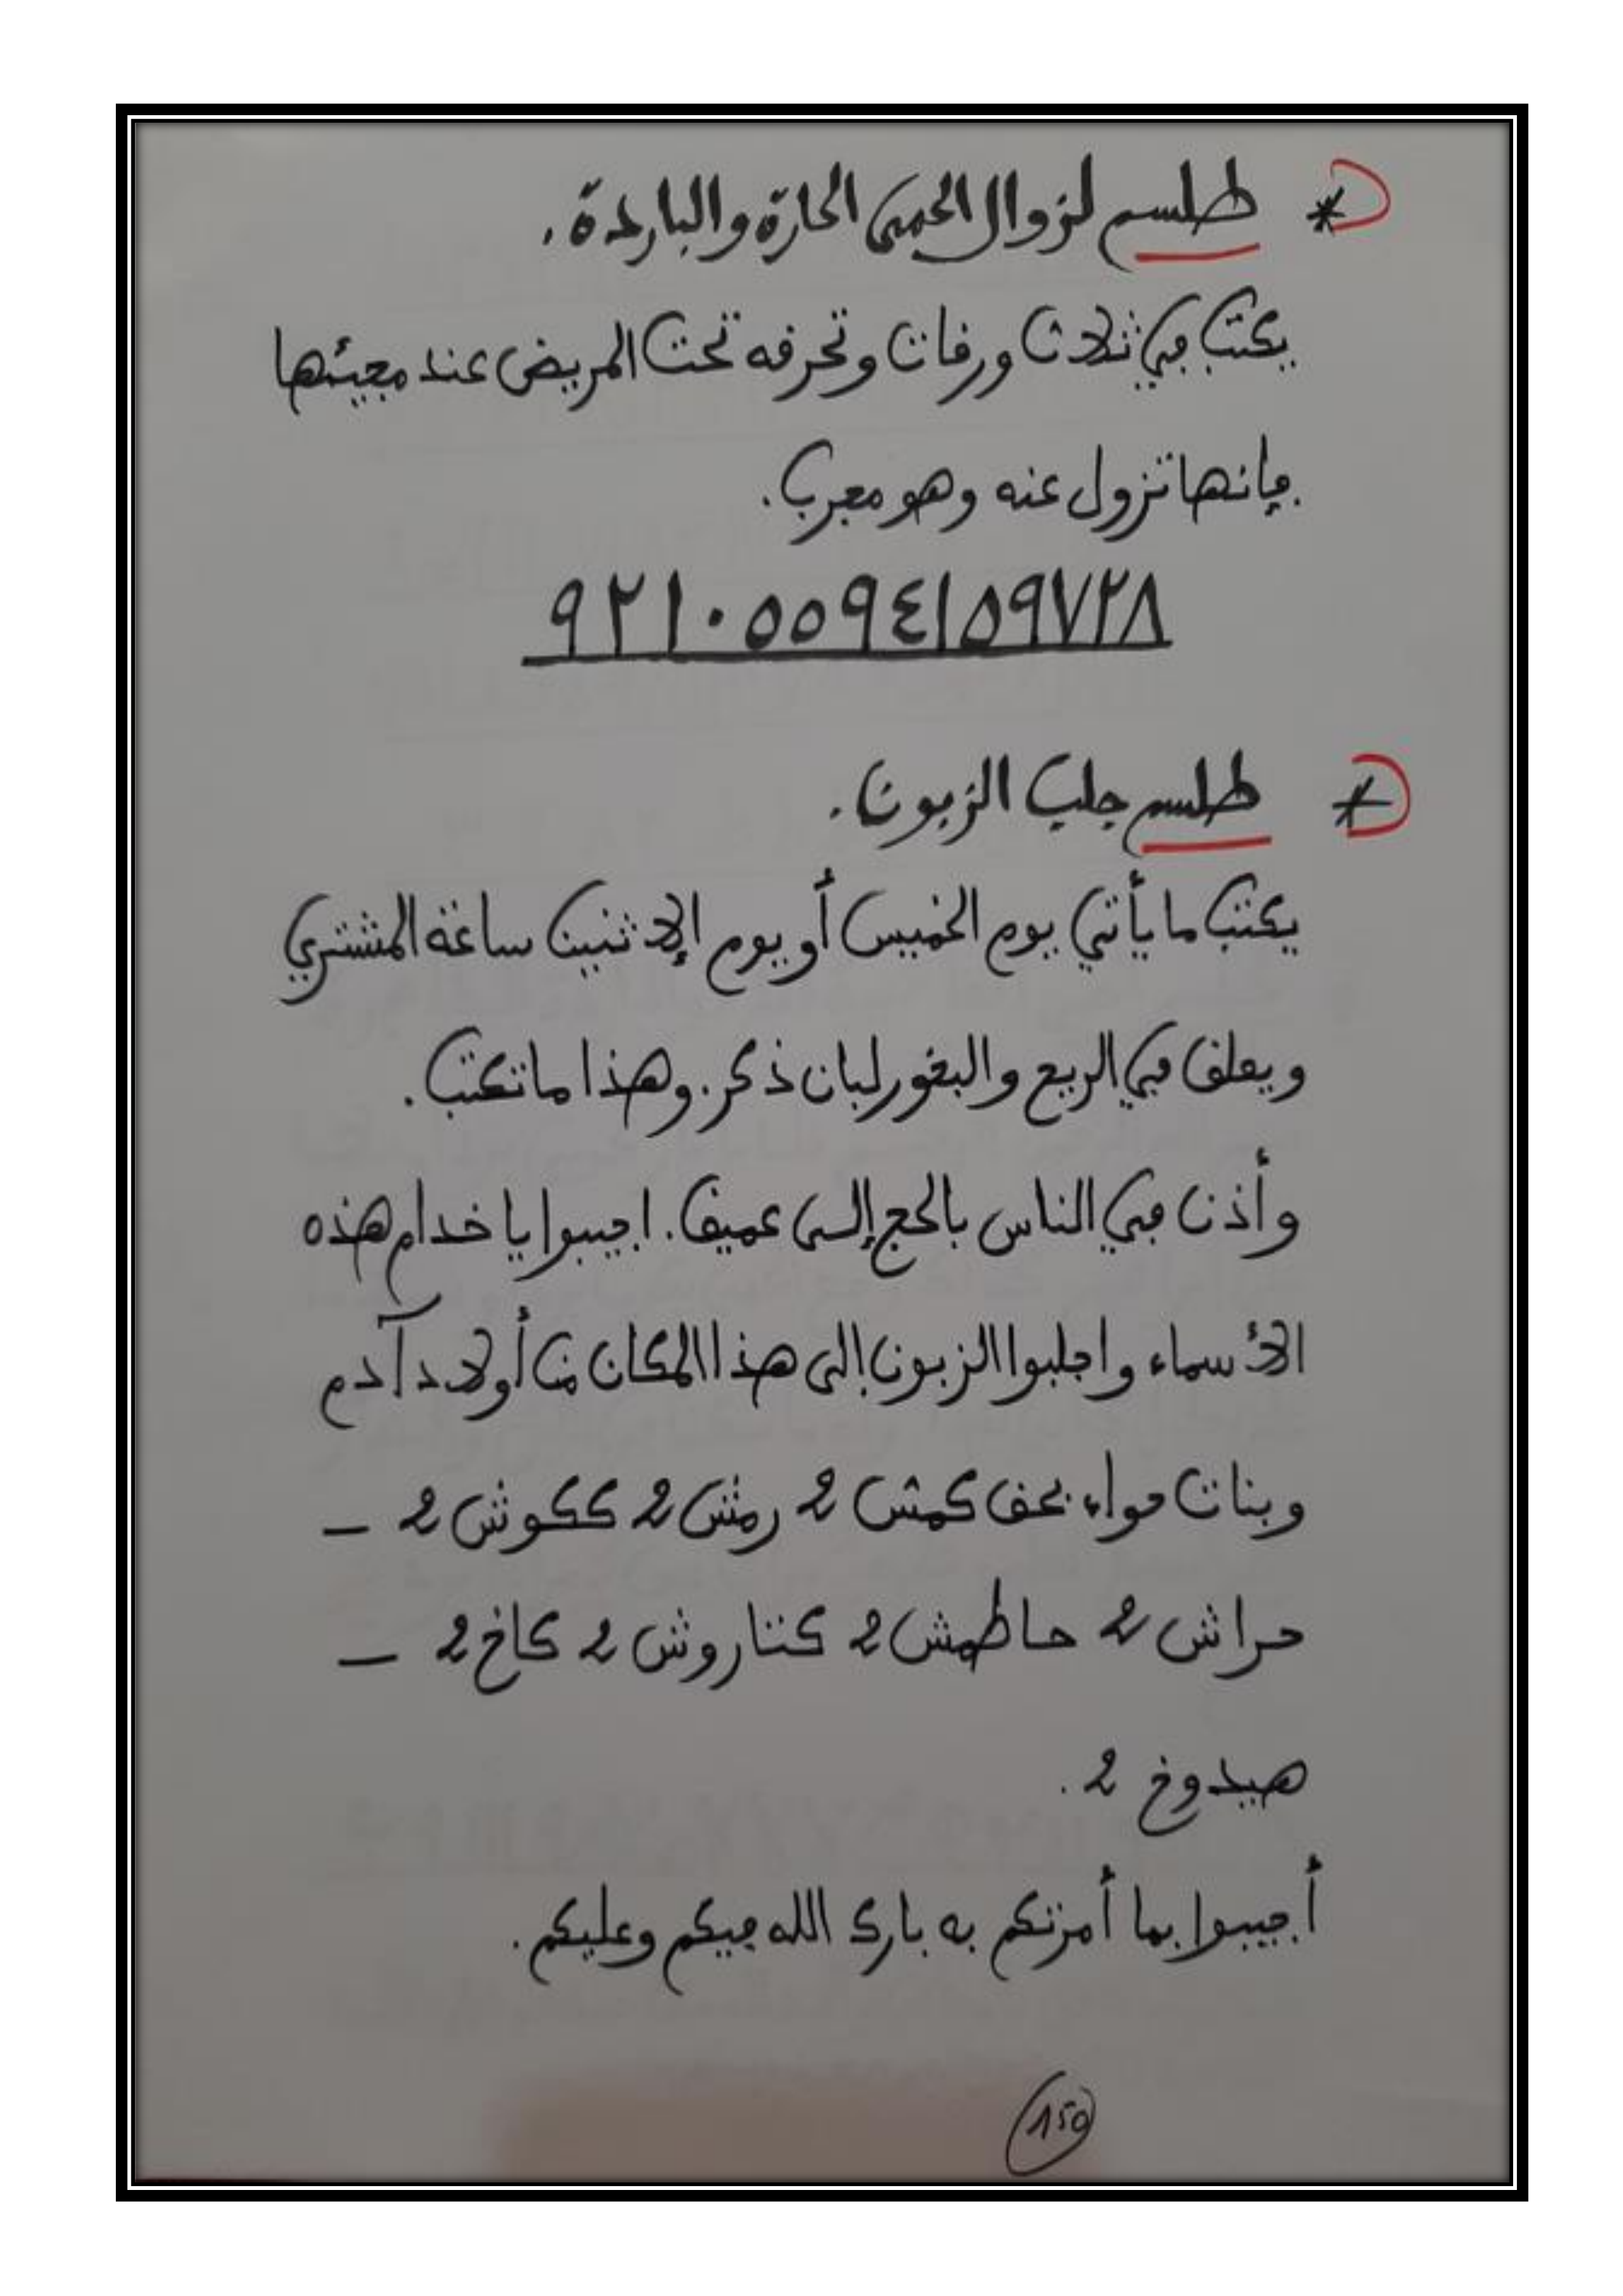 * طلسم لزوال الحمى الحارة والباردة.
يكتب في ثلاث ورقات وتحرقه تحت المريض عند مجيئها
فإنها تزول عنه وهو مجرب.
٩٢١٠٥٥٩٤١٥٩٧٢٨
* طلسم جلب الزبون.
يكتب ما يأتي يوم الخميس أو يوم الإثنين ساعة المشتري
ويعلق في الربع والبخور لبان ذكر. وهذا ما تكتب.
وأذن في الناس بالحج إلى عميق. اجيبوا يا خدام هذه
الأسماء واجلبوا الزبون إلى هذا المكان من أولاد آدم
وبنات حواء بحق كمش 2 رمش 2 ككوش 2 –
حراش 2 حاطمش 2 كتاروش 2 كاخ 2 –
هيدوخ 2.
أجيبوا بما أمرتكم به بارك الله فيكم وعليكم.
150